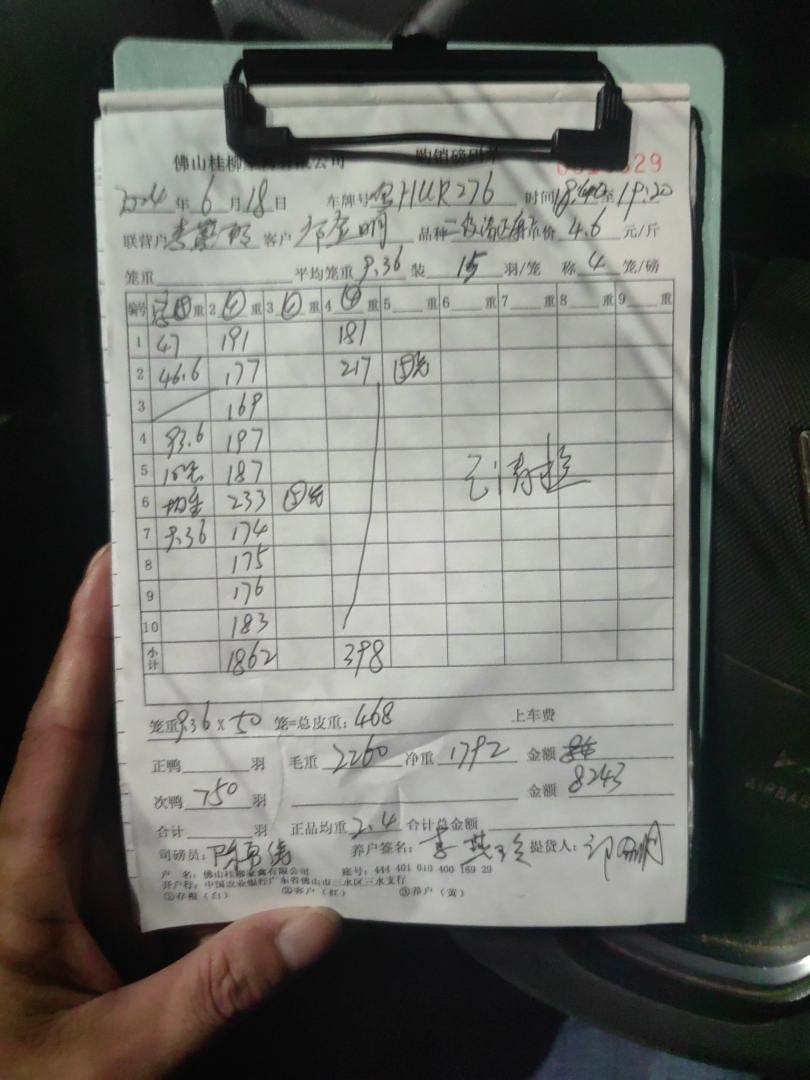 佛山桂柳家禽有限公司 购销磅码单
2024 年 6 月 18 日 车牌号 HUR276 时间 18:40 至 19:20
联营户 客户 品种 单价 4.6 元/斤
笼重 平均笼重 9.36 装 15 羽/笼 称 4 笼/磅
编号 重 2 重 3 重 4 重 5 重 6 重 7 重 8 重 9 重
1 47 191 181
2 46.6 177 217 ⑤笼
3 169
4 93.6 197
5 10笼 187
6 均重 233 ⑤笼
7 9.36 174
8 175
9 176
10 183
小计 1862 398
已清
笼重 9.36 × 50 笼=总皮重: 468 上车费
正鸭 羽 毛重 2260 净重 1792 金额
次鸭 750 羽 金额 8243
合计 羽 正品均重 2.4 合计总金额
司磅员: 养户签名: 提货人:
户 名: 佛山桂柳家禽有限公司 账号: 444 401 010 400 169 29
开户行: 中国农业银行广东省佛山市三水区三水支行
①存根(白) ②客户(红) ③养户(黄)